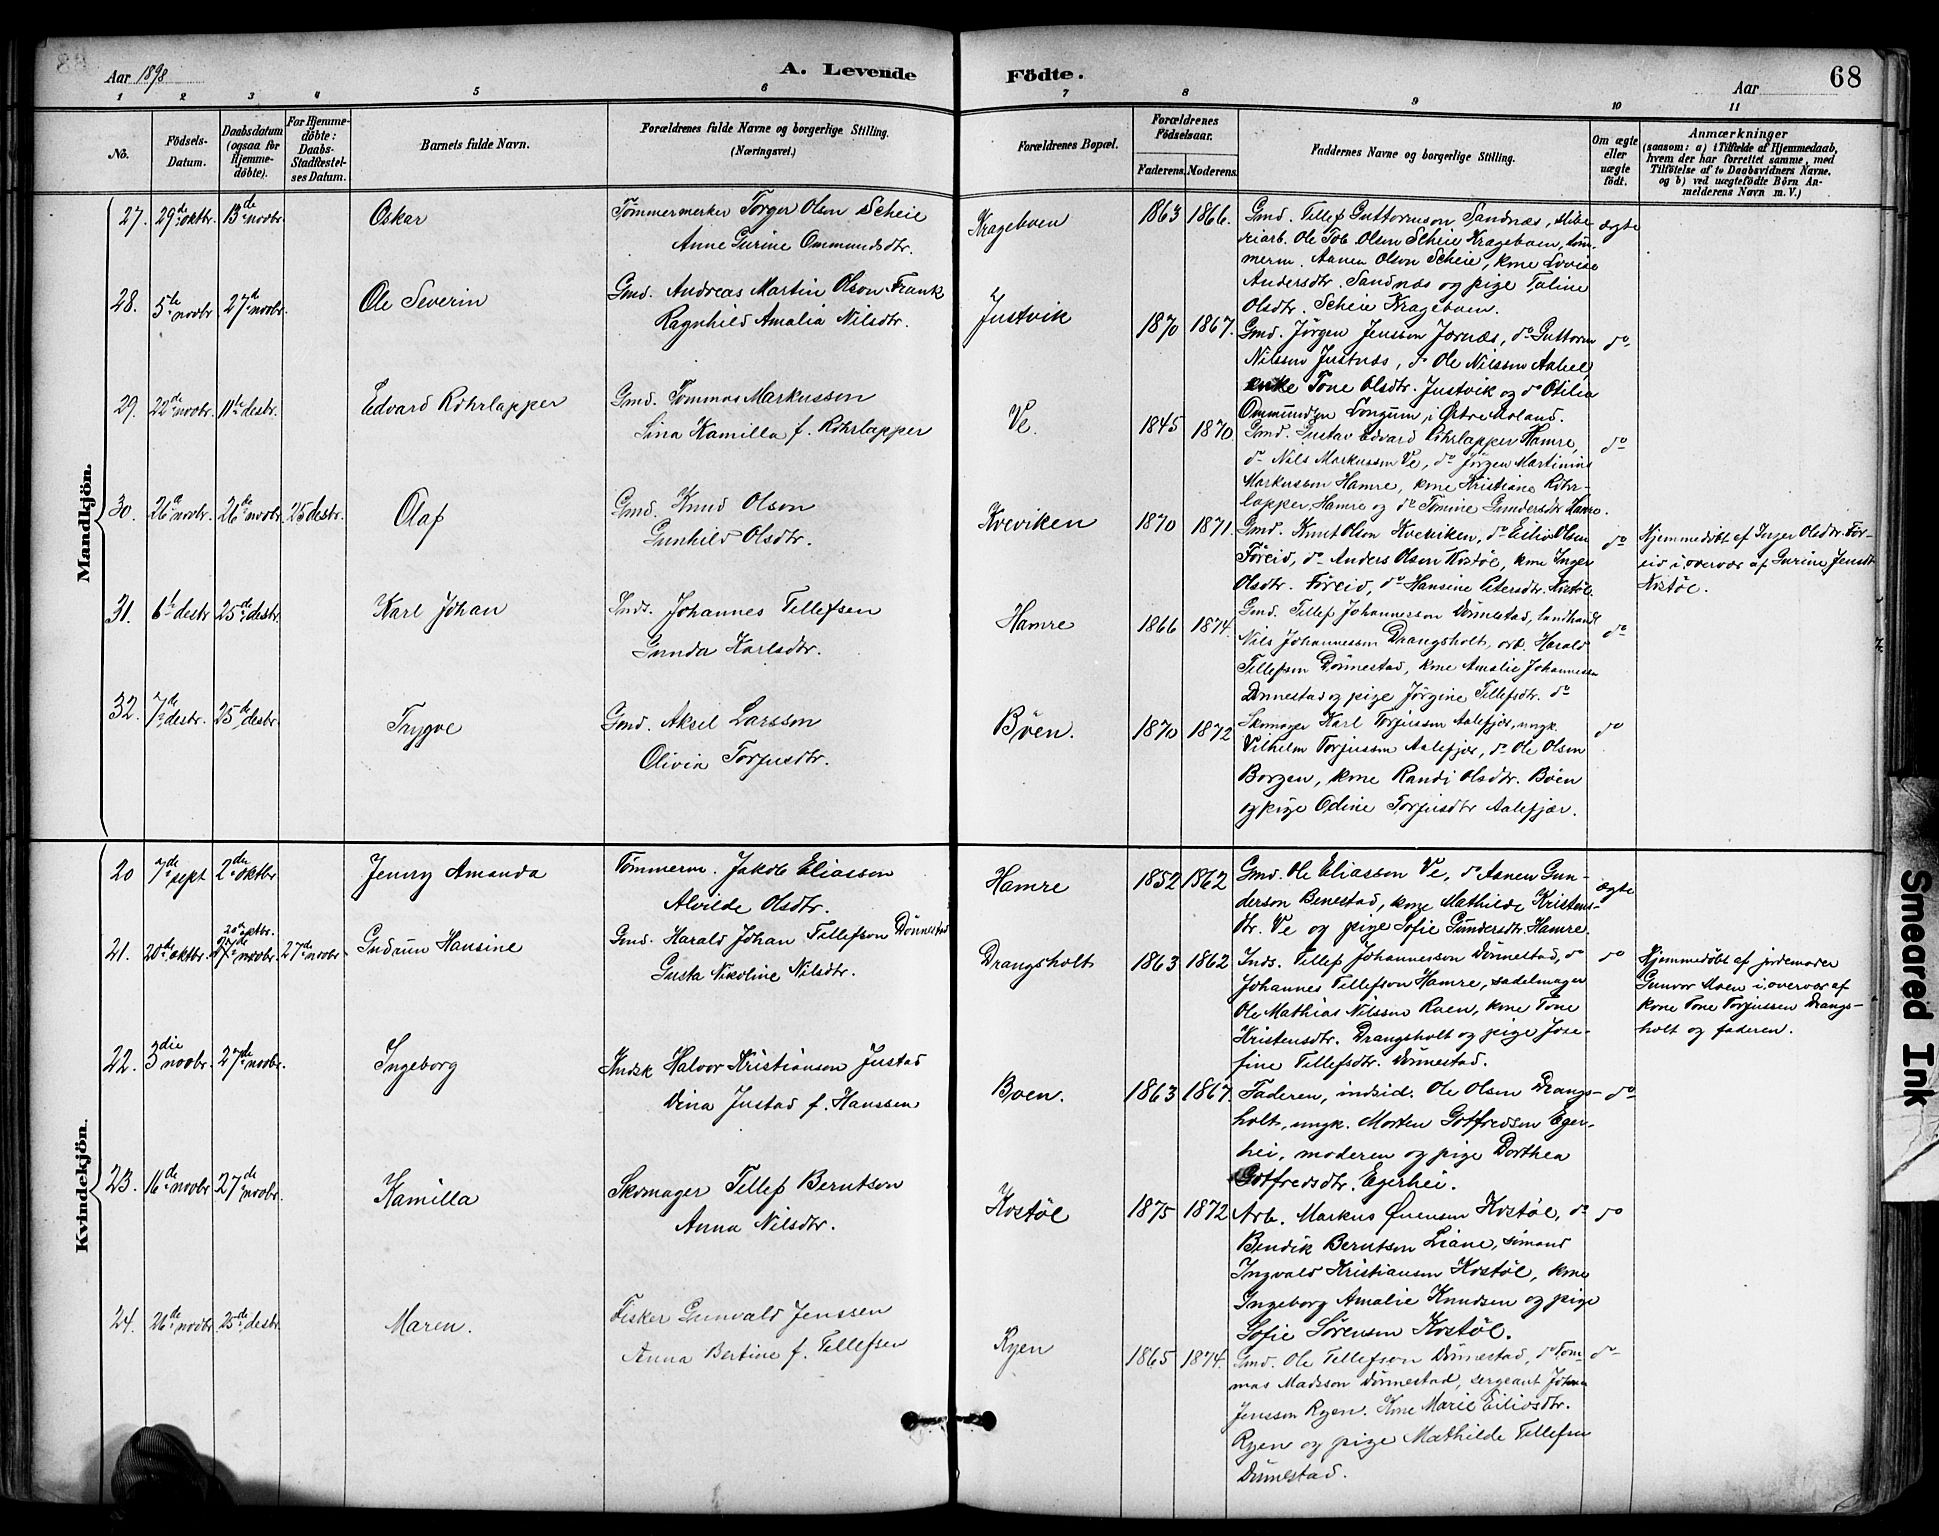 Aar 1898
A. Levende
Födte.
Aar
68
1 2 3 4 5 6 7 8 9 10 11
No.
Födsels-Datum.
Daabsdatum (ogsaa for Hjemmedöbte).
For Hjemmedöbte: Daabs-Stadfestelses Datum.
Barnets fulde Navn.
Forældrenes fulde Navne og borgerlige Stilling. (Næringsvei.)
Forældrenes Bopæl.
Forældrenes Födselsaar.
Faderens. Moderens.
Faddernes Navne og borgerlige Stilling.
Om ægte eller uægte födt.
Anmærkninger
(saasom: a) i Tilfælde af Hjemmedaab,
hvem der har forrettet samme, med
Tilföielse af to Daabsvidners Navne.
og b) ved uægtefödte Börn An-
melderens Navn m. V.)
Mandkjön.
27. 29de oktbr. 13de novbr. Oskar
Tömmermerker Torger Olsen Scheie
Anne Gurine Ommundsdtr.
Krageboen 1863 1866.
Gmd. Tellef Guttormson Sandnæs, slibe
riarb. Ole Tob. Olsen Scheie Krageboen, töm-
merm. Aanen Olsen Scheie, kone Lovise
Andersdtr. Sandnæs og pige Taline
Olsdtr. Scheie Krageboen.
ægte
28. 5te novbr. 27de novbr. Ole Severin
Gmd. Andreas Martin Olson Frank
Ragnhild Amalia Nilsdtr.
Justvik 1870 1867.
Gmd. Jörgen Jensson Jornæs, do Guttorm
Nilssen Justnæs, do Ole Nilssen Aabel,
enke Tone Olsdtr. Justvik og do Otilia
Ommundsen Longum, i Östre Moland.
do
29. 22de novbr. 11te desbr. Edvard Röhrlapper
Gmd. Tommas Markusson
Lina Kamilla f. Röhrlapper
Ve. 1845 1870
Gmd. Gustav Edvard Röhrlapper Hamre,
do Nils Markusson Ve, do Jörgen Martinius
Markusson Hamre, kone Kristiane Röhr-
lapper Hamre og do Tomine Gundersdtr Hamre.
do
30. 26de novbr. 26de novbr. 25 desbr. Olaf
Gmd. Knud Olson
Gunhild Olsdtr.
Kveviken 1870 1871.
Gmd. Knut Olson Kveviken, do Eiliv Olsen
Föreid, do Anders Olsen Kostöl, kone Inger
Olsdtr. Föreid, do Hansine Petersdtr. Kostöl.
do
Hjemmedöbt af Inger Olsdtr. För-
eid i overvær af Gurine Jensdt
Kostöl.
31. 6te desbr 25de desbr. Karl Johan
Inds. Johannes Tellefsen
Gunda Karlsdtr.
Hamre 1866 1874.
Gmd. Tellef Johannesson Dönnestad, landhandl
Nils Johannesson Drangsholt, arb. Harald
Tellefsen Dönnestad, kone Amalie Johannessen
Dönnestad og pige Jörgine Tellefsdtr. do
do
32. 7de desbr. 25de desbr. Trygve
Gmd. Aksel Larsson
Olivia Torjusdtr.
Böen. 1870 1872
Skomager Karl Torjussen Aalefjær, ungk.
Vilhelm Torjussen Aalefjær, do Ole Olsen
Borgen, kone Randi Olsdtr. Böen
og pige Odine Torjusdtr Aalefjær.
do
Kvindekjön.
20 7de sept 2den oktbr Jenny Amanda
Tömmerm. Jakob Eliasson
Alvilde Olsdtr.
Hamre 1852 1862
Gmd. Ole Eliasson Ve, do Asnen Gun-
derson Benestad, kone Mathilde Kristens-
dtr. Ve og pige Sofie Gundersdtr. Hamre.
ægte
21. 20de oktbr. 20de oktbr. 27de novbr. 27de novbr. Gudrun Hansine
Gmd. Harald Johan Tellefson Dönnestad
Gusta Nikoline Nilsdtr.
Drangsholt 1863 1862
Inds. Tellef Johannesson Dönnestad, do
Johannes Tellefson Hamre, sadelmager
Ole Mathias Nilsson Roen, kone Tone
Kristensdtr. Drangsholt og pige Jose-
fine Tellefsdtr. Dönnestad.
do
Hjemmedöbt af jordemoder
Gunvor Moen i overvær af
kone Tone Torjussen Drangs-
holt og faderen.
22. 3die novbr. 27de novbr. Ingeborg
Indsk Halvor Kristianson Justad
Dina Justad f. Hanssen
Boen. 1863 1867.
Faderen, indsid. Ole Olsen Drangs-
holt, ungk. Morten Gotfredsen Eger-
hei, moderen og pige Dorthea
Gotfredsdtr. Egerhei.
do
23. 16de novbr 27de novbr. Kamilla
Skomager Tellef Berntson
Anna Nilsdtr.
Kostöl 1875 1872
Arb. Markus Evensen Kostöl, do
Bendik Berntson Liane, sömand
Ingvald Kristiansen Kostöl, kone
Ingeborg Amalie Knudsen og pige
Sofie Sörensen Kostöl.
do
24. 26de novbr 25de desbr. Maren.
Fisker Gunvald Jenssen
Anna Bertine f. Tellefsen
Ryen 1865 1874.
Gmd. Ole Tellefson Dönnestad, do Tom-
mas Madsson Dönnestad, sergeant Johan
Jensson Ryen. Kone Marie Eilivsdtr.
Ryen og pige Mathilde Tellefsen
Dönnestad.
do
Smeared Ink